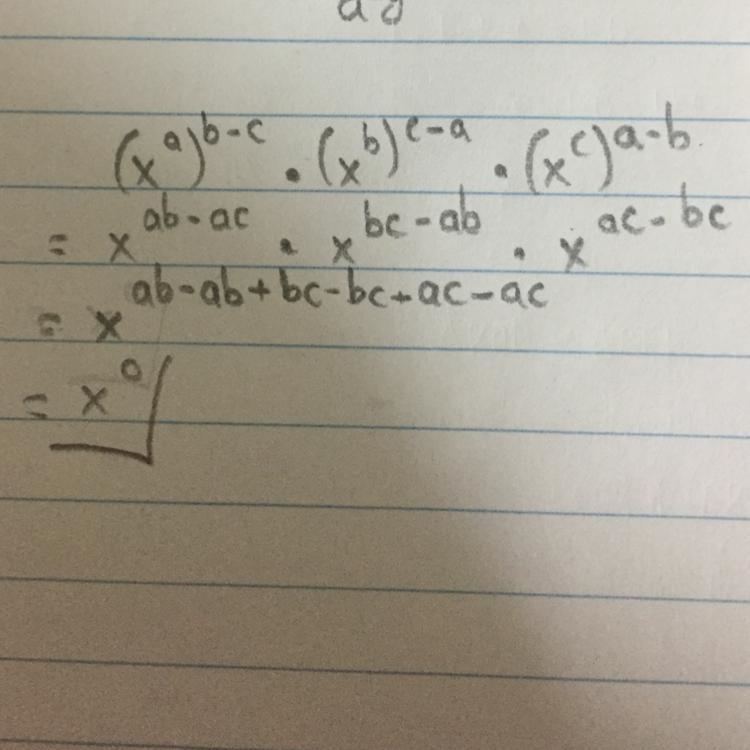 (x^a)^{b-c} · (x^b)^{c-a} · (x^c)^{a-b}
= x^{ab-ac} · x^{bc-ab} · x^{ac-bc}
= x^{ab-ab+bc-bc+ac-ac}
= x^0